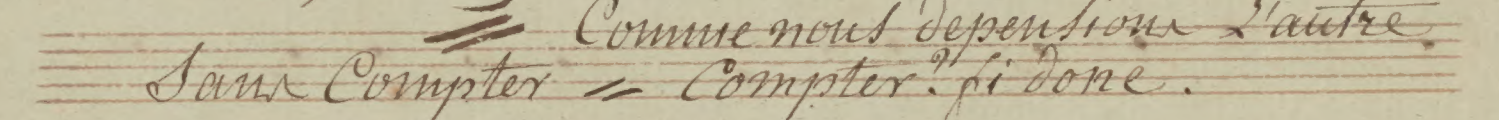 = Comme nous depensions L'autre
Sans Compter = Compter? fi donc.